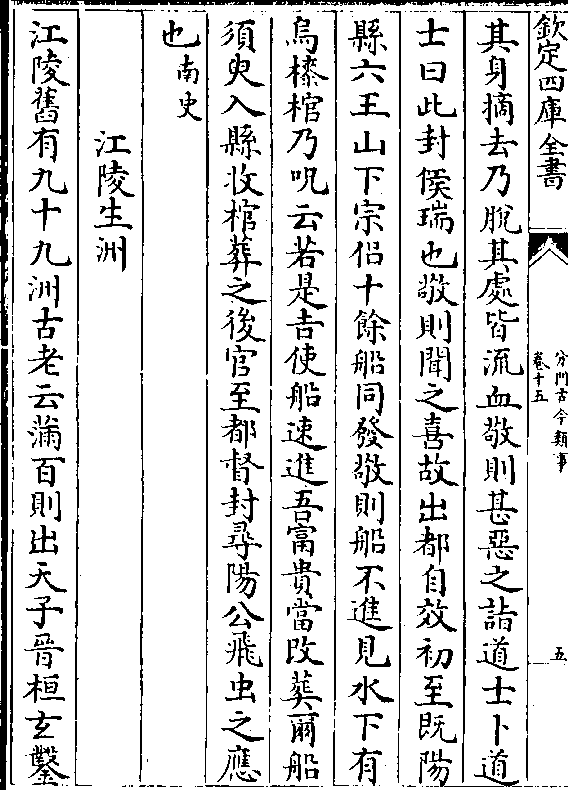 欽定四庫全書
分門古今類事
卷十五
五
其身摘去乃脫其處皆流血敬則甚惡之詣道士卜道
士曰此封侯瑞也敬則聞之喜故出都自效初至既陽
縣六王山下宗侣十餘船同發敬則船不進見水下有
烏㯡棺乃呪云若是吉使船速進吾富貴當改葬爾船
須臾入縣收棺葬之後官至都督封尋陽公飛虫之應
也南史
江陵生洲
江陵舊有九十九洲古老云滿百則出天子晉桓玄鑿